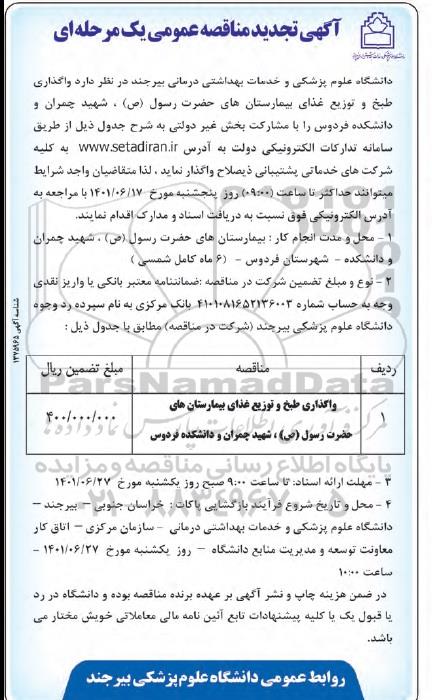 آگهی تجدید مناقصه عمومی یک مرحله‌ای
دانشگاه علوم پزشکی و خدمات بهداشتی درمانی بیرجند در نظر دارد واگذاری
طبخ و توزیع غذای بیمارستان های حضرت رسول (ص) ، شهید چمران و
دانشکده فردوس را با مشارکت بخش غیر دولتی به شرح جدول ذیل از طریق
سامانه تدارکات الکترونیکی دولت به آدرس www.setadiran.ir به کلیه
شرکت های خدماتی پشتیبانی ذیصلاح واگذار نماید ، لذا متقاضیان واجد شرایط
میتوانند حداکثر تا ساعت (۰۹:۰۰) روز پنجشنبه مورخ ۱۴۰۱/۰۶/۱۷ با مراجعه به
آدرس الکترونیکی فوق نسبت به دریافت اسناد و مدارک اقدام نمایند.
۱ – محل و مدت انجام کار : بیمارستان های حضرت رسول (ص) ، شهید چمران
و دانشکده – شهرستان فردوس – (۶ ماه کامل شمسی )
۲ – نوع و مبلغ تضمین شرکت در مناقصه :ضمانتنامه معتبر بانکی یا واریز نقدی
وجه به حساب شماره ۴۱۰۱۰۸۱۶۵۲۱۳۶۰۰۳ بانک مرکزی به نام سپرده رد وجوه
دانشگاه علوم پزشکی بیرجند (شرکت در مناقصه) مطابق با جدول ذیل :
ردیف مناقصه مبلغ تضمین ریال
۱ واگذاری طبخ و توزیع غذای بیمارستان های
حضرت رسول (ص) ، شهید چمران و دانشکده فردوس ۴۰۰/۰۰۰/۰۰۰
ParsNamadData
پایگاه اطلاع رسانی مناقصه و مزایده
۳ – مهلت ارائه اسناد: تا ساعت ۹:۰۰ صبح روز یکشنبه مورخ ۱۴۰۱/۰۶/۲۷
۴ – محل و تاریخ شروع فرآیند بازگشایی پاکات : خراسان جنوبی – بیرجند –
دانشگاه علوم پزشکی و خدمات بهداشتی درمانی – سازمان مرکزی – اتاق کار
معاونت توسعه و مدیریت منابع دانشگاه – روز یکشنبه مورخ ۱۴۰۱/۰۶/۲۷ –
ساعت ۱۰:۰۰
در ضمن هزینه چاپ و نشر آگهی بر عهده برنده مناقصه بوده و دانشگاه در رد
یا قبول یک یا کلیه پیشنهادات تابع آئین نامه مالی معاملاتی خویش مختار می
باشد.
روابط عمومی دانشگاه علوم پزشکی بیرجند
شناسه آگهی ۱۳۷۵۹۶۵